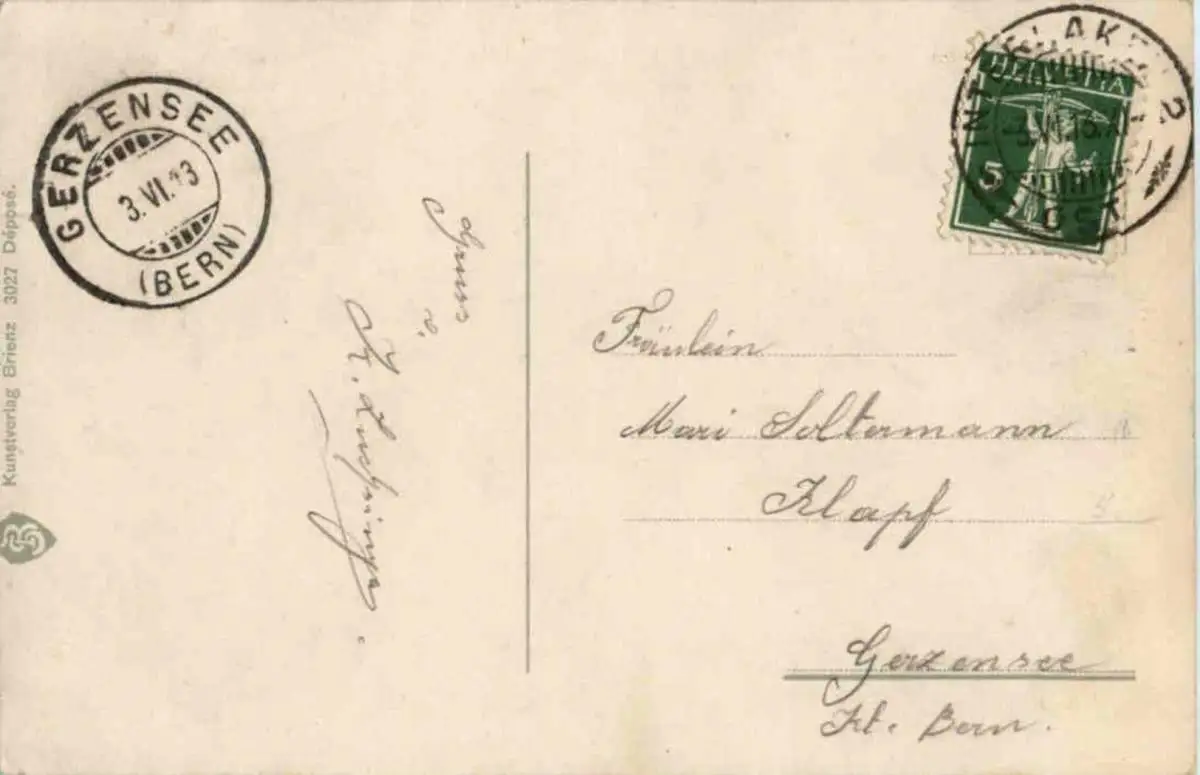 GERZENSEE
3. VI. 13
(BERN)
INTERLAKEN 2
OST
HELVETIA
5
Kunstverlag Brienz 3027 Déposé.
Fräulein
Mari Soltermann
Klapf
Gerzensee
Kt. Bern.